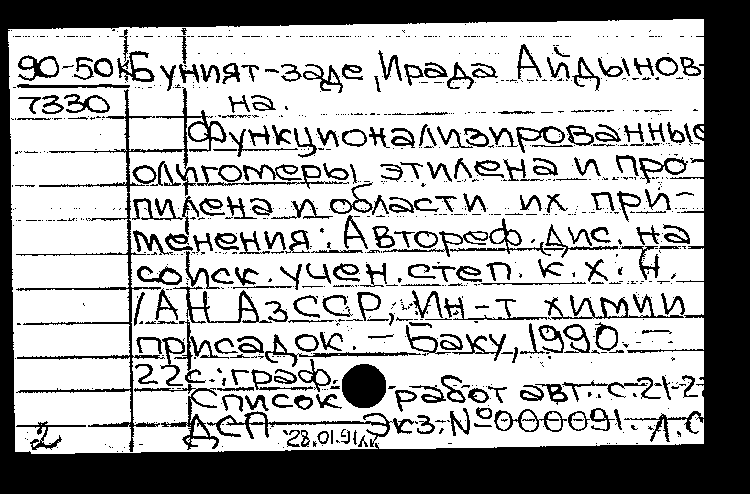 90-50к Буният-заде, Ирада Айдынов-
7330 на.
Функционализированные
олигомеры этилена и про-
пилена и области их при-
менения: Автореф. дис. на
соиск. учен. степ. к. х. н.
/АН АзССР, Ин-т химии
присадок. - Баку, 1990. -
22с.: граф.
Список работ авт.: с. 21-22
ДСП Экз. № 000091.
2 28.01.91